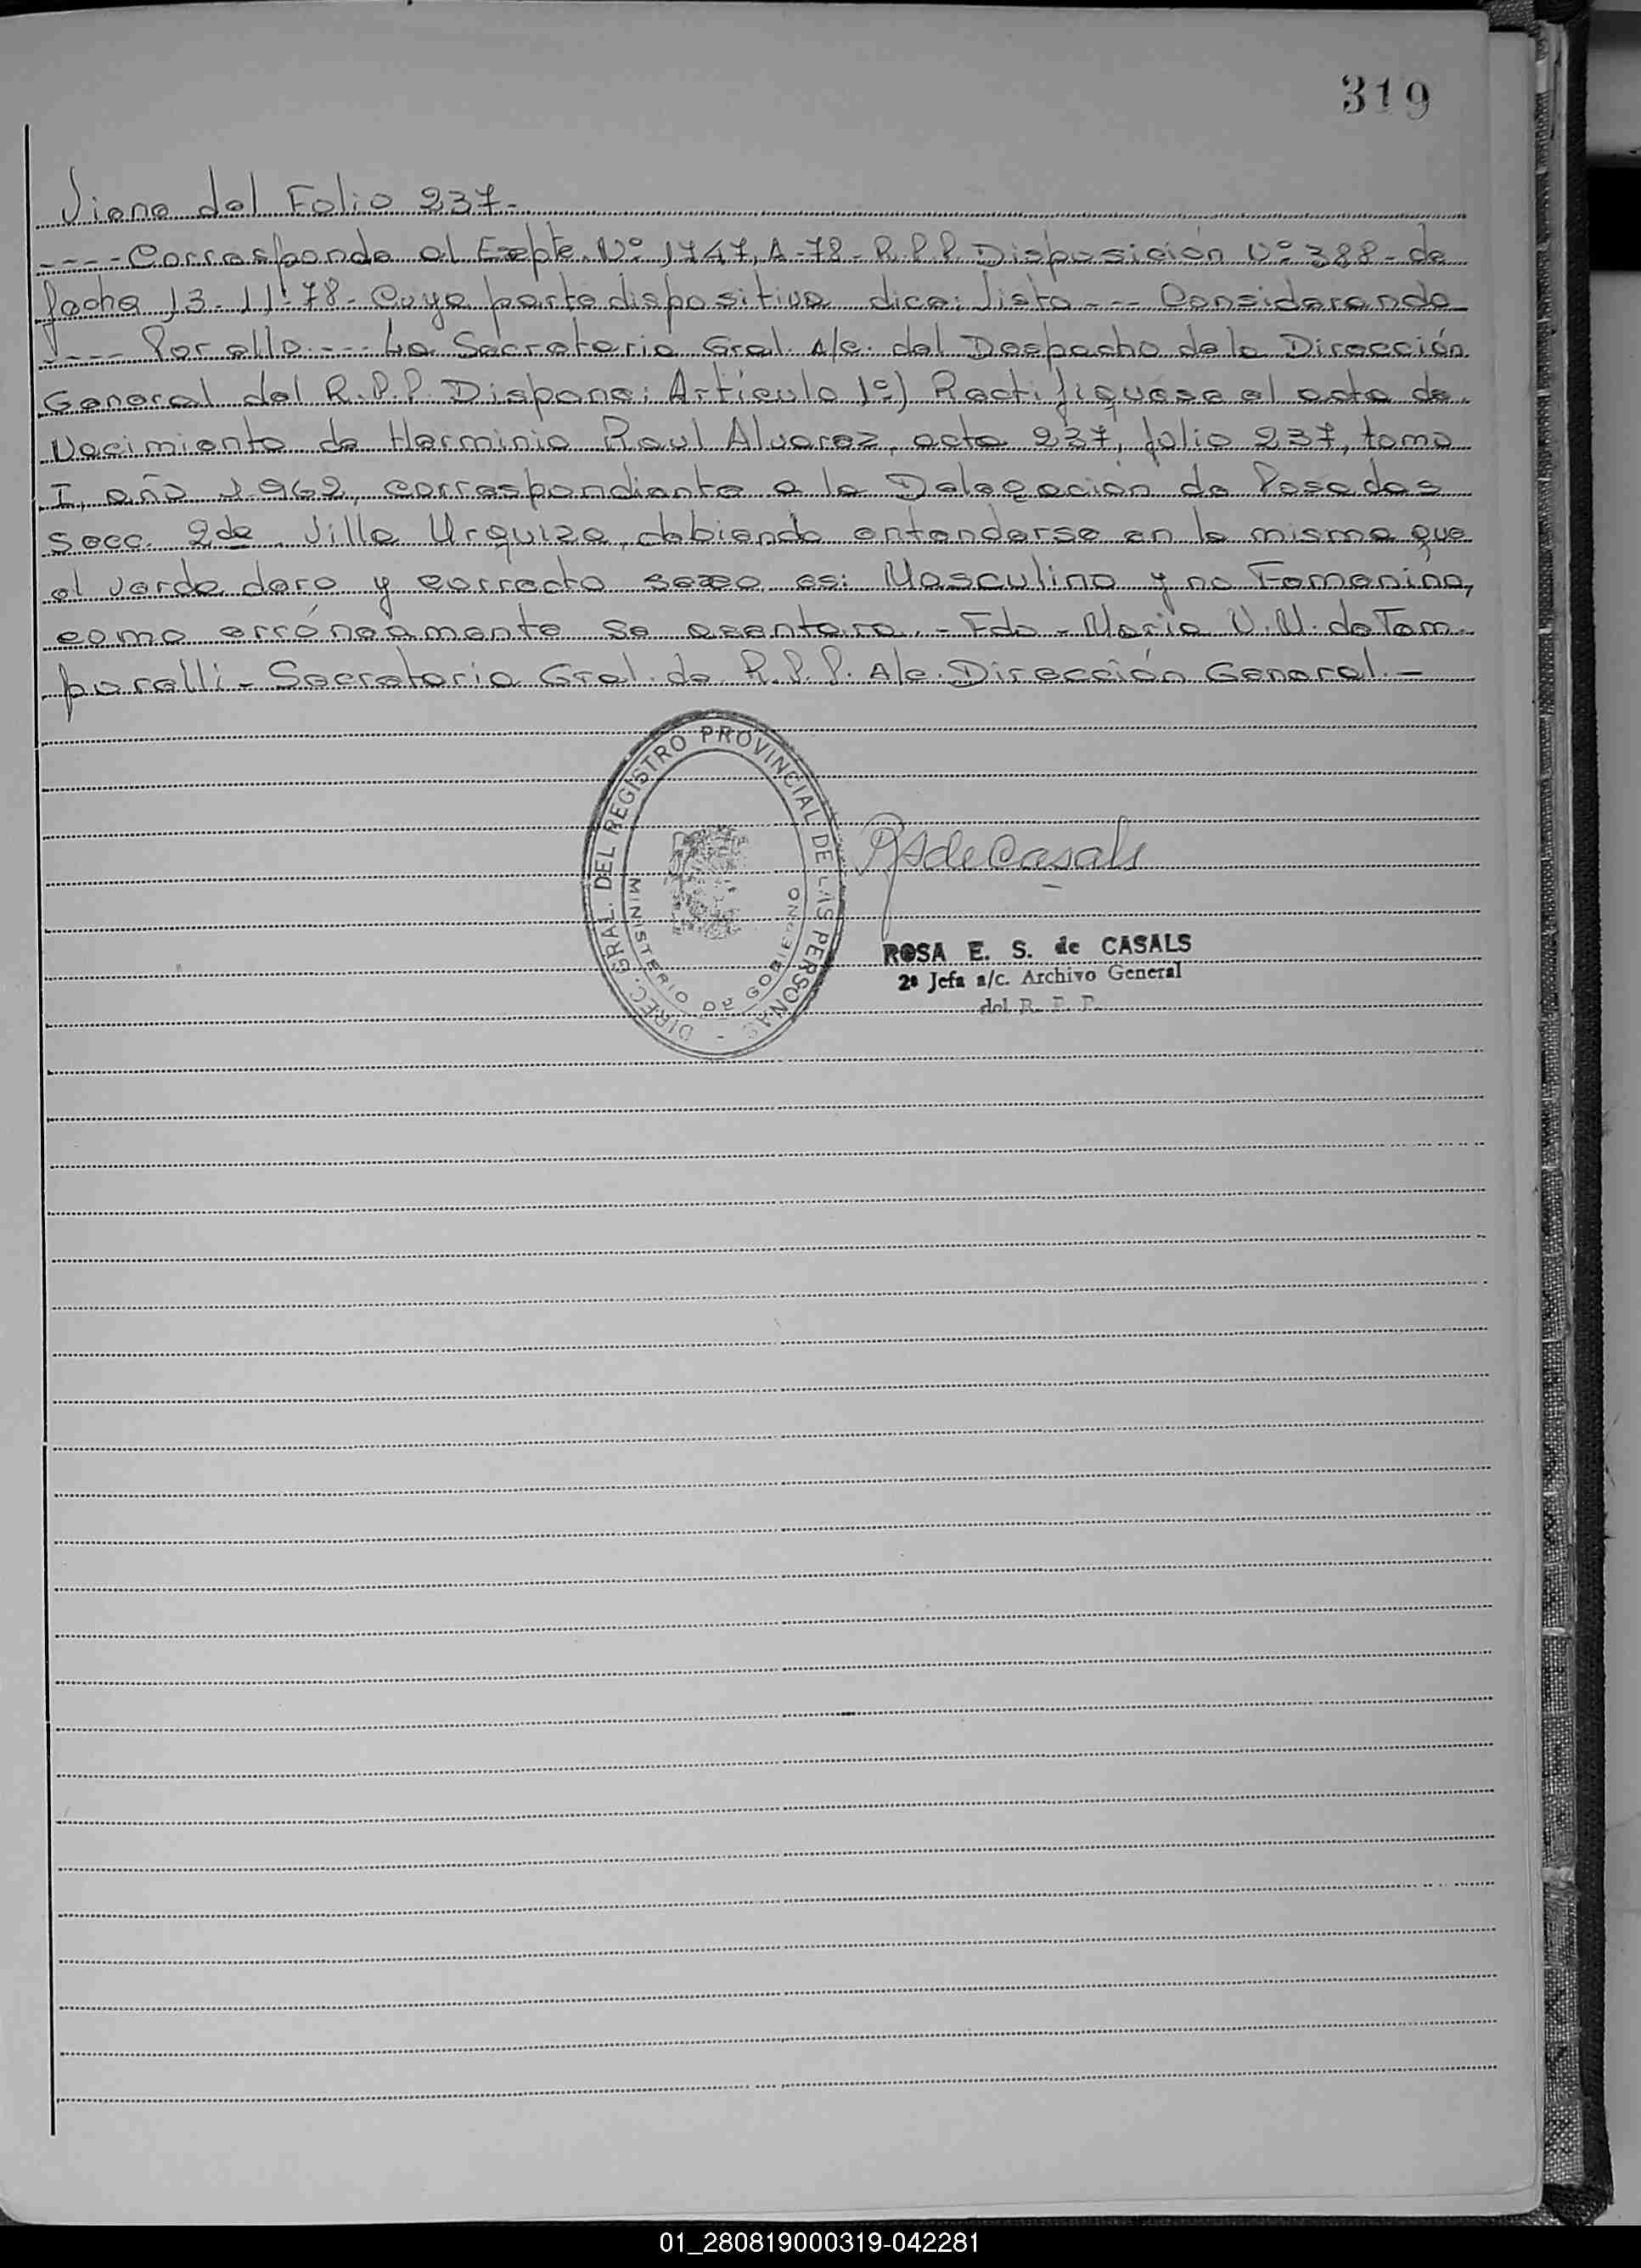 319
Viene del Folio 237.-
---- Corresponde al Expte. Nº 1747, A-78- R.P.P. Disposición Nº 388- de
fecha 13-11-78- Cuya parte dispositiva dice: Visto --- Considerando
---- Por ello --- La Secretaria Gral. A/c. del Despacho de la Dirección
General del R.P.P. Dispone: Artículo 1º) Rectifíquese el acta de
Nacimiento de Herminio Raul Alvarez, acta 237, folio 237, tomo
I, año 1.962, correspondiente a la Delegación de Posadas
Secc. 2da. Villa Urquiza, debiendo entenderse en la misma que
el verdadero y correcto sexo es: Masculino y no Femenino,
como erróneamente se asentara.- Fdo- Maria N.N. de Tam-
porelli- Secretaria Gral. de R.P.P. A/c. Dirección General.-
DIREC. GRAL. DEL REGISTRO PROVINCIAL DE LAS PERSONAS -
MINISTERIO DE GOBIERNO
RSdeCasals
ROSA E. S. de CASALS
2ª Jefa a/c. Archivo General
del R. P. P.
01_280819000319-042281